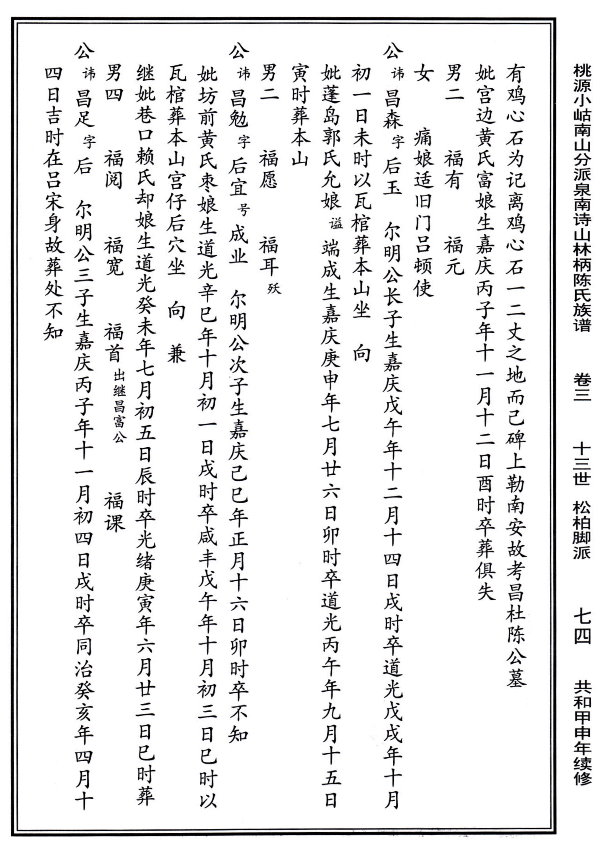 桃源小岵南山分派泉南诗山林柄陈氏族谱 卷三 十三世 松柏脚派 七四 共和甲申年续修
有鸡心石为记离鸡心石一二丈之地而已碑上勒南安故考昌杜陈公墓
妣宫边黄氏富娘生嘉庆丙子年十一月十二日酉时卒葬俱失
男二 福有 福元
女 痛娘适旧门吕顿使
公讳昌森字后玉 尔明公长子生嘉庆戊午年十二月十四日戌时卒道光戊戌年十月
初一日未时以瓦棺葬本山坐 向
妣蓬岛郭氏允娘谥端成生嘉庆庚申年七月廿六日卯时卒道光丙午年九月十五日
寅时葬本山
男二 福愿 福耳殀
公讳昌勉字后宜号成业 尔明公次子生嘉庆己巳年正月十六日卯时卒不知
妣坊前黄氏枣娘生道光辛巳年十月初一日戌时卒咸丰戊午年十月初三日巳时以
瓦棺葬本山宫仔后穴坐 向 兼
继妣巷口赖氏却娘生道光癸未年七月初五日辰时卒光绪庚寅年六月廿三日巳时葬
男四 福阅 福宽 福首出继昌富公 福课
公讳昌足字后 尔明公三子生嘉庆丙子年十一月初四日戌时卒同治癸亥年四月十
四日吉时在吕宋身故葬处不知